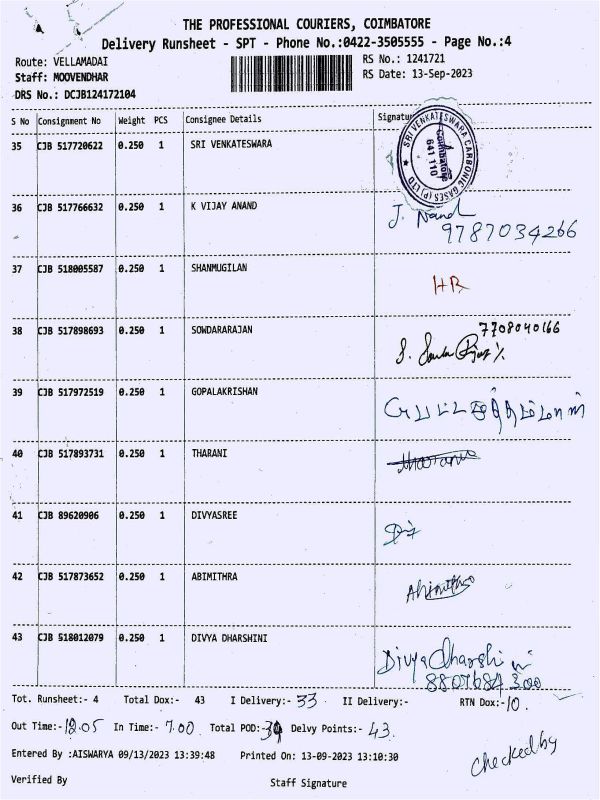 THE PROFESSIONAL COURIERS, COIMBATORE
Delivery Runsheet - SPT - Phone No.:0422-3505555 - Page No.:4
Route: VELLAMADAI RS No.: 1241721
Staff: MOOVENDHAR RS Date: 13-Sep-2023
DRS No.: DCJB124172104
S No Consignment No Weight PCS Consignee Details Signatu
35 CJB 517720622 0.250 1 SRI VENKATESWARA
SRI VENKATESWARA CARBONIC GASES (P) LTD
Coimbatore
641 110
36 CJB 517766632 0.250 1 K VIJAY ANAND J. Nand
9787034266
37 CJB 518005587 0.250 1 SHANMUGILAN HR
38 CJB 517898693 0.250 1 SOWDARARAJAN 7708040166
39 CJB 517972519 0.250 1 GOPALAKRISHAN
40 CJB 517893731 0.250 1 THARANI tharani
41 CJB 89620906 0.250 1 DIVYASREE
42 CJB 517873652 0.250 1 ABIMITHRA Abimithra
43 CJB 518012079 0.250 1 DIVYA DHARSHINI Divya Dharshini
Tot. Runsheet:- 4 Total Dox:- 43 I Delivery:- 33 II Delivery:- RTN Dox:- 10.
Out Time:- 12.05 In Time:- 7.00 Total POD:- Delvy Points:- 43.
Entered By :AISWARYA 09/13/2023 13:39:48 Printed On: 13-09-2023 13:10:30 checked by
Verified By Staff Signature